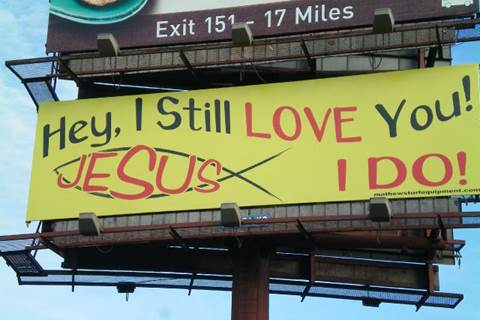 Exit 151 - 17 Miles
Hey, I Still LOVE You!
JESUS
I DO!